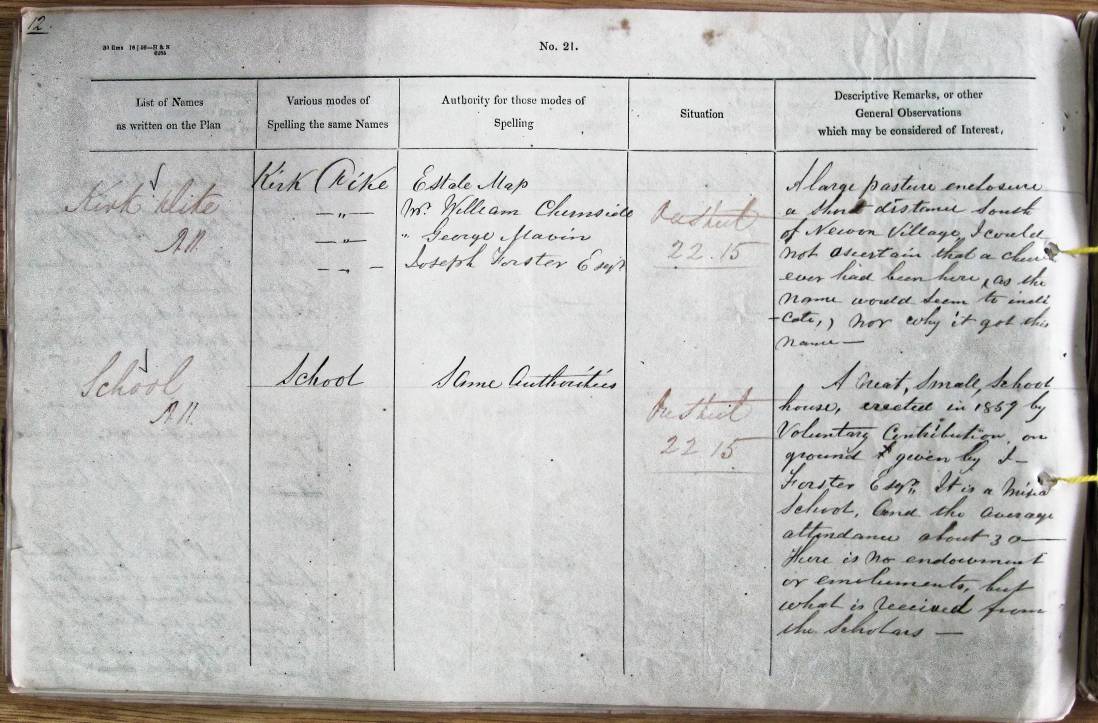 12.
No. 21.
List of Names
as written on the Plan
Various modes of
Spelling the same Names
Authority for those modes of
Spelling
Situation
Descriptive Remarks, or other
General Observations
which may be considered of Interest,
Kirk
R.N.
Kirk
Estate Map
Mr. William Chirnside
" George Mavin
Joseph Forster Esqr
On Sheet
22.15
A large pasture enclosure
a short distance South
of Newton Village, I could
not ascertain that a
ever had been here, as the
name would seem to indi
-cate,) nor why it got this
name —
School
R.N.
School
Same Authorities
On Sheet
22.15
A Neat, Small, School
house, erected in 1859 by
Voluntary Contribution, on
ground given by J—
Forster Esqr. It is a Mixed
School, and the average
attendance about 30—
There is no endowment
or emoluments, but
what is received from
the Scholars —